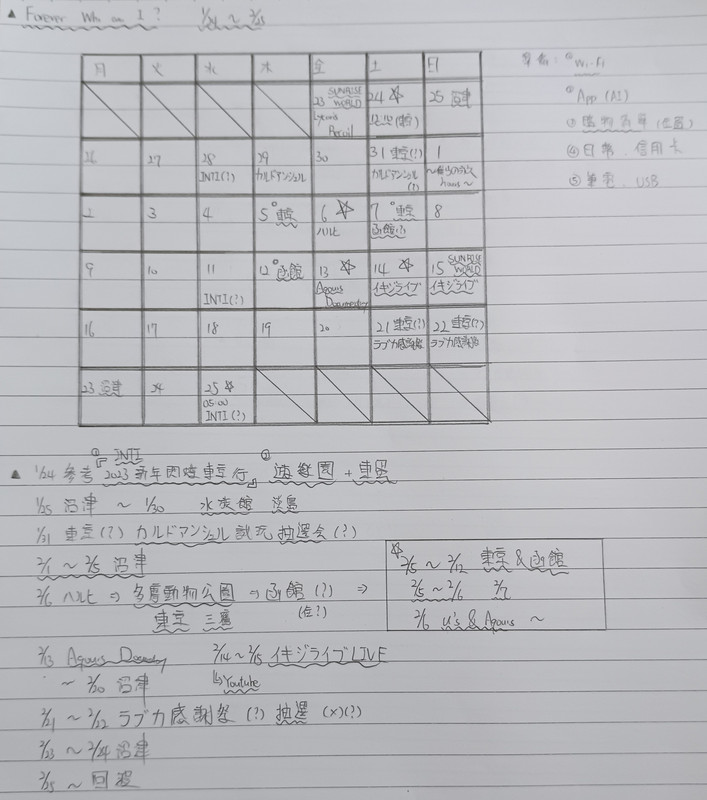 ▲ Forever Who am I? 1/24 ~ 2/25
月 火 水 木 金 土 日
23 SUNRISE WORLD
24 ☆
25 沼津
26 27 28 29 30 31 東京(?) 1
INTI(?) カルドマンシュル カルドマンシュル(?)
2 3 4 5 東京 6 ☆ 7 東京 8
ハルヒ 函館(?)
9 10 11 12 函館 13 ☆ 14 ☆ 15 SUNRISE WORLD
INTI(?) Aqours Documentary イキヅライブ イキヅライブ
16 17 18 19 20 21 東京(?) 22 東京(?)
ラブカ感謝祭 ラブカ感謝祭
23 沼津 24 25 ☆
05:00
INTI(?)
① Wi-Fi
② App (AI)
③
④ 日幣、信用卡
⑤ 筆電、USB
① INTI ②
▲ 1/24 參考『2023新年閃燈東京行』 + 東照
1/25 沼津 ~ 1/30 水族館 淡島
1/31 東京(?) カルドマンシュル試玩 抽選会(?)
2/1 ~ 2/5 沼津
2/6 ハルヒ ⇒ 多摩動物公園 → 函館(?) ⇒
東京 三鷹 (住?)
☆ 2/5 ~ 2/12 東京 & 函館
2/5 ~ 2/6 2/7
2/6 μ's & Aqours ~
2/13 Aqours Documentary 2/14 ~ 2/15 イキヅライブ LIVE
~ 2/20 沼津 ↳ Youtube
2/21 ~ 2/22 ラブカ感謝祭 (?) 抽選 (x)(?)
2/23 ~ 2/24 沼津
2/25 ~ 回程